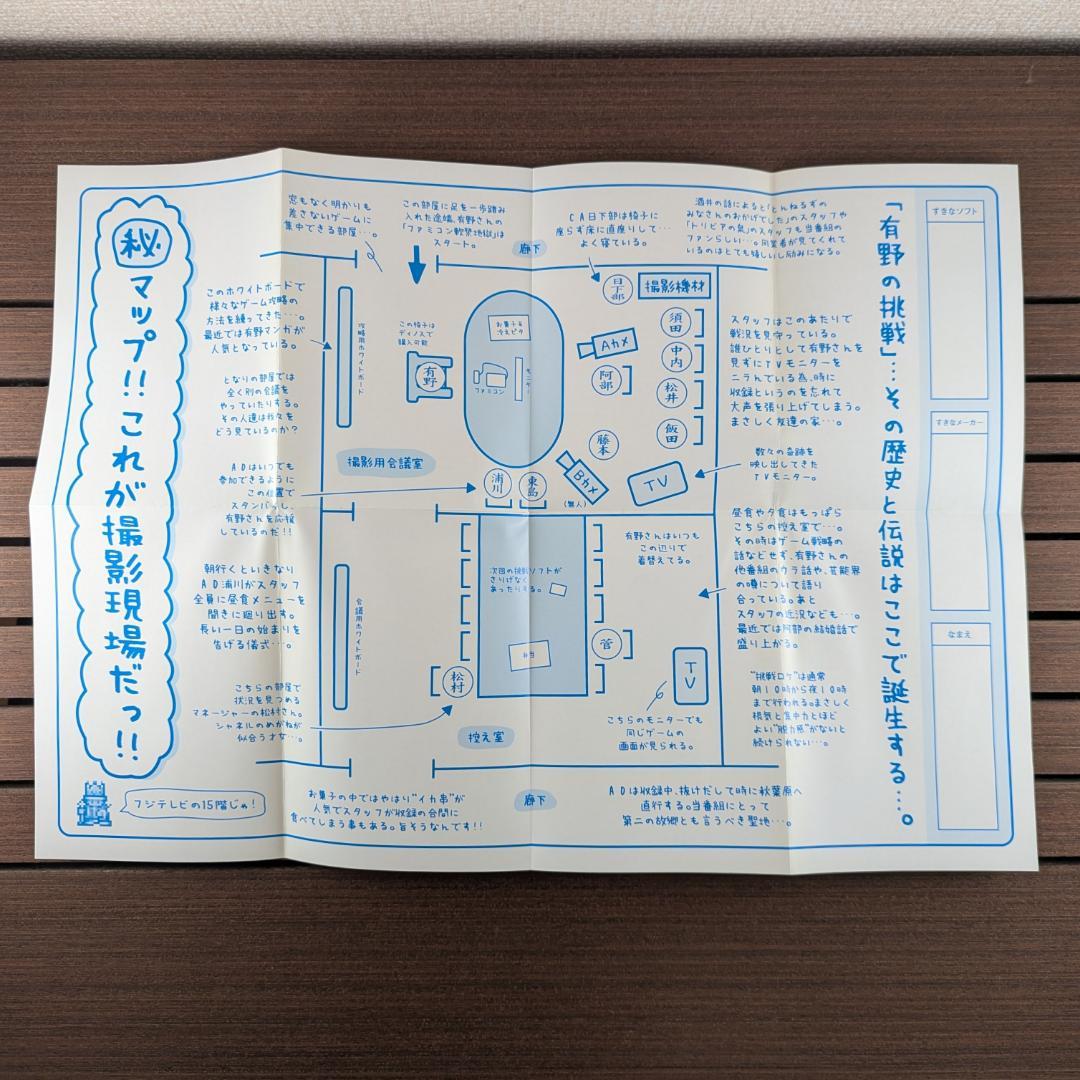 ㊙マップ!!これが撮影現場だっ!!
「有野の挑戦」…その歴史と伝説はここで誕生する…。
窓もなく明かりも
差さないゲームに
集中できる部屋…。
この部屋に足を一歩踏み
入れた途端、有野さんの
「ファミコン軟禁地獄」は
スタート。
廊下
CA日下部は椅子に
座らず床に直座りして…
よく寝ている。
酒井の話によると「とんねるずの
みなさんのおかげでした」のスタッフや
「トリビアの泉」のスタッフも当番組の
ファンらしい…。同業者が見てくれて
いるのはとても嬉しいし励みになる。
このホワイトボードで
様々なゲーム攻略の
方法を練ってきた…。
最近では有野マンガが
人気となっている。
攻略用ホワイトボード
この椅子は
ディノスで
購入可能
有野
お菓子&
冷えピタ
ファミコン
モニター
日下部
撮影機材
須田
Aカメ
中内
阿部
松井
藤本
飯田
Bカメ
(無人)
TV
浦川
東島
撮影用会議室
スタッフはこのあたりで
戦況を見守っている。
誰ひとりとして有野さんを
見ずにTVモニターを
ニラんでいる為、時に
収録というのを忘れて
大声を張り上げてしまう。
まさしく友達の家…。
となりの部屋では
全く別の会議を
やっていたりする。
その人達は我々を
どう見ているのか?
数々の奇跡を
映し出してきた
TVモニター。
ADはいつでも
参加できるように
この位置で
スタンバイし、
有野さんを応援
しているのだ!!
有野さんはいつも
この辺りで
着替えてる。
昼食や夕食はもっぱら
こちらの控え室で…。
その時はゲーム戦略の
話などせず、有野さんの
他番組のウラ話や、芸能界
の噂について語り
合っている。あと
スタッフの近況なども…。
最近では阿部の結婚話で
盛り上がる。
朝行くといきなり
AD浦川がスタッフ
全員に昼食メニューを
聞きに廻り出す。
長い一日の始まりを
告げる儀式…。
会議用ホワイトボード
次回の挑戦ソフトが
さりげなく
あったりする。
弁当
菅
松村
TV
控え室
こちらの部屋で
状況を見つめる
マネージャーの松村さん。
シャネルのめがねが
似合うオな…。
こちらのモニターでも
同じゲームの
画面が見られる。
"挑戦ロケ"は通常
朝10時から夜10時
まで行われる。まさしく
根気と集中力とほど
よい"脱力感"がないと
続けられない…。
フジテレビの15階じゃ!
お菓子の中ではやはり"イカ串"が
人気でスタッフが収録の合間に
食べてしまう事もある。旨そうなんです!!
廊下
ADは収録中、抜けだして時に秋葉原へ
直行する。当番組にとって
第二の故郷とも言うべき聖地…。
すきなソフト
すきなメーカー
なまえ